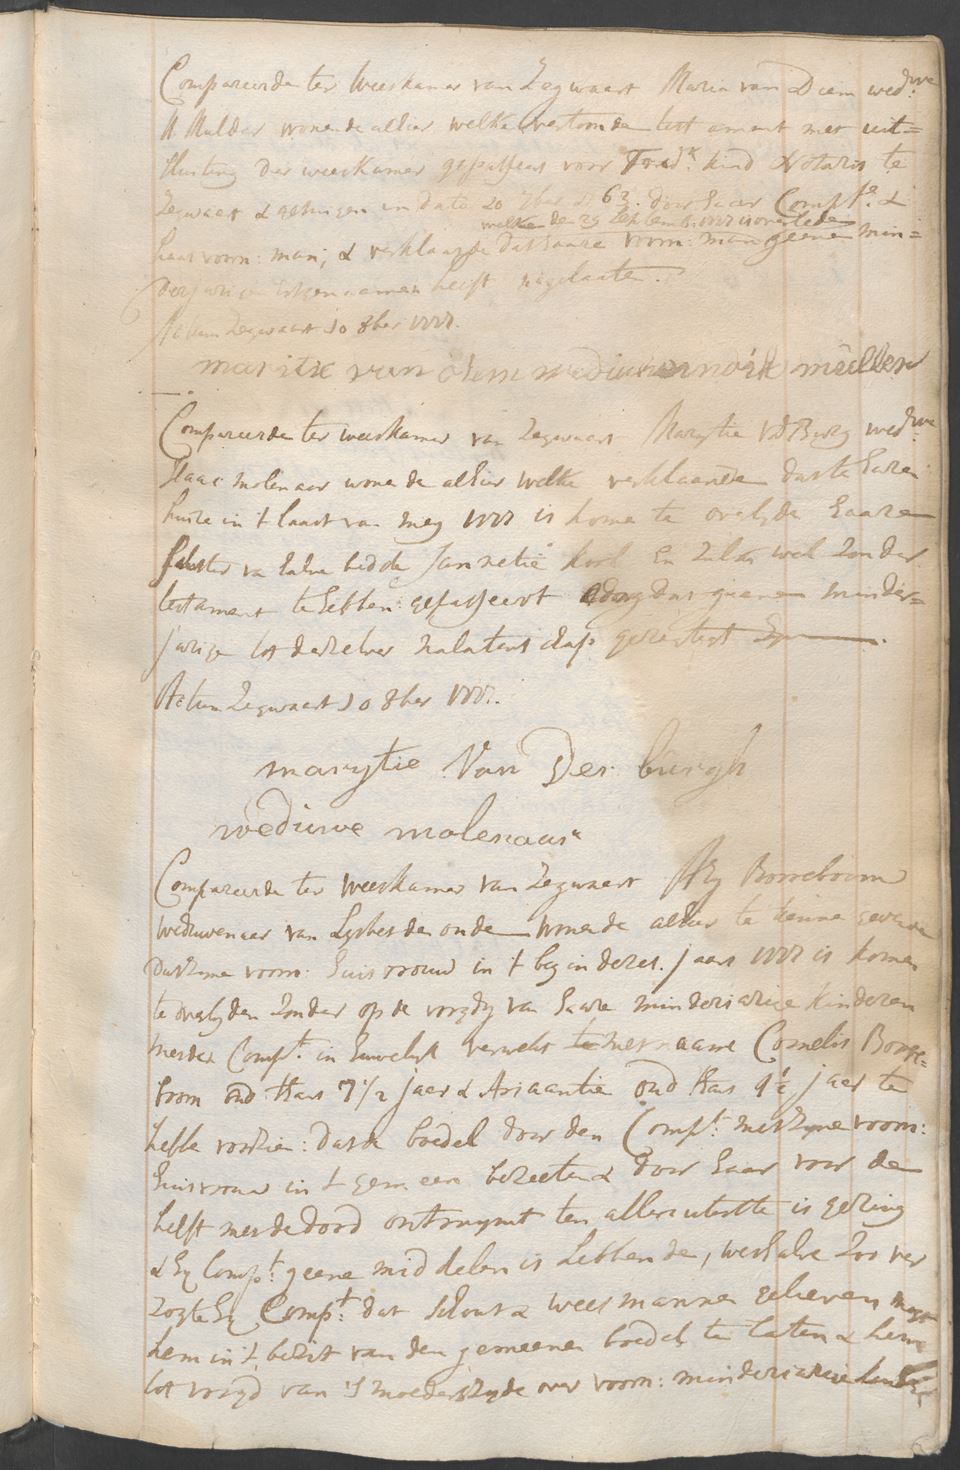 Compareerde ter Weeskamer van Zegwaert Maria van Diem wed:we
M Mulder wonende alhier, welke vertoonde test ament met uit=
sluiting der weeskamer gepasseert voor Fred:k Kind Notaris te
Zegwaert & getuigen in dato 20 7ber A° 63. door haar Comp:te &
welke den 29 September 1777 is overleden
haar voorn: man; & verklaarde dat haare voorn: man geene min=
derjarige erfgenaamen heeft nagelaaten.
Actum Zegwaert 10 8ber 1777.
maritie van diem weduwe mulder
Compareerde ter weeskamer van Zegwaert Marytie V D Burg wed:we
Isaac molenaar wonende alhier welke verklaarde dat te haren
huize in 't laast van mey 1777 is kome te overlyde haare
suster van halve bedde Jannetie en zulks wel zonder
testament te hebben gepasseert dog dat geene minder=
jarige tot derzelver nalatenschap geregtigt zyn.
Actum Zegwaert 10 8ber 1777.
marytie Van Der burgh
weduwe molenaar
Compareerde ter Weeskamer van Zegwaert Ary Boreboom
Weduwenaar van Lysbet den onde wonende alhier te kenne gevende
dat zyne voorn: huisvrouw in 't begin dezes jaars 1777 is komen
te overlyden zonder op de voogdy van haare minderjarige kinderen
met den Comp:t in huwelyk verwekt te met naame Cornelis Bore=
boom oud thans 7 1/2 jaer & Ariaantie oud thans jaer te
hebbe voorzien: dat de boedel door den Comp:t met zyne voorn:
huisvrouw in 't gemeen bezeeten & door haar voor de
helft met de dood ontruymt ten alleruiterste is gering
& hy Comp:t geene middelen is hebbende, weshalve zoo ver
zogte hy Comp:t dat schout & weesmannen gelieven mogt
hem in 't bezit van den gemeenen boedel te laten & hem
tot voogd van 's moeders zyde over voorn: minderjarige kinders